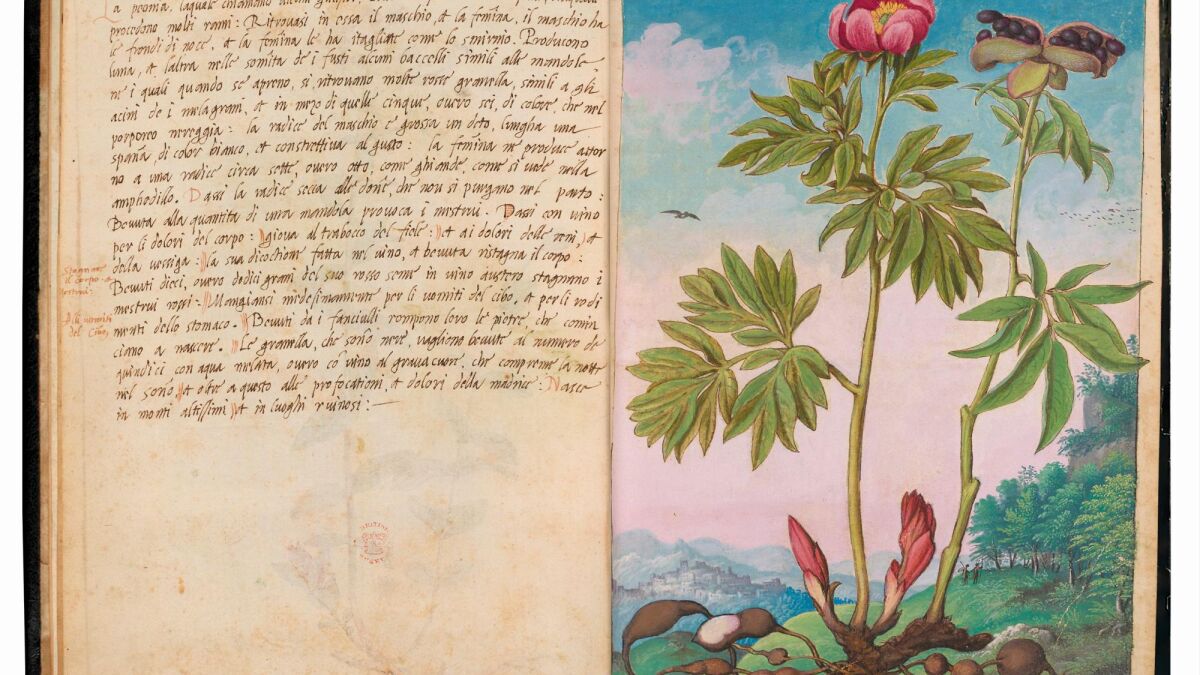 La peonia, laquale chiamano alcuni
procedono molti rami: Ritrovasi in essa il maschio, et la femina, il maschio ha
le frondi di noce, et la femina le ha itagliate come lo smirnio. Producono
luna, et laltra nelle somita de i fusti alcuni baccelli simili alle mandole
ne i quali quando se apreno, si ritrovano molte rosse granella, simili a gli
acini de i melagrani, et in mezo di quelle cinque, overo sei, di colore, che nel
porporeo nereggia: la radice del maschio e grossa un deto, lungha una
spana di color bianco, et constrettiva al gusto: la femina ne produce ator
no a una radice circa sette, overo otto, come ghiande, come si vede nella
amphodillo. Dassi la radice secca alle done, che non si purgano nel parto:
Bevuta alla quantita di una mandola provoca i mestrui. Dassi con vino
per li dolori del corpo: giova al trabocco del fiele: et ai dolori delle reni, et
della vessiga: la sua dicottione fatta nel vino, et bevuta ristagna il corpo:
Bevuti dieci, overo dodici grani del suo rosso seme in vino austero stagnano i
mestrui rossi: Mangiansi medesimamente per li vomiti del cibo, et per li rodi
menti dello stomaco. Bevuti da i fanciulli rompono loro le pietre, che comin
ciano a nascere. Le granella, che sono nere, vagliono bevute al numero de
quindici con aqua melata, overo cō vino al gravacuore, che compreme la notte
nel sono, et oltre a questo alle profocationi, et dolori della madrice: Nasce
in monti altissimi, et in luoghi ruinosi:—
Stagnare
il corpo e
mestrui.
Alli vomiti
del Cibo,